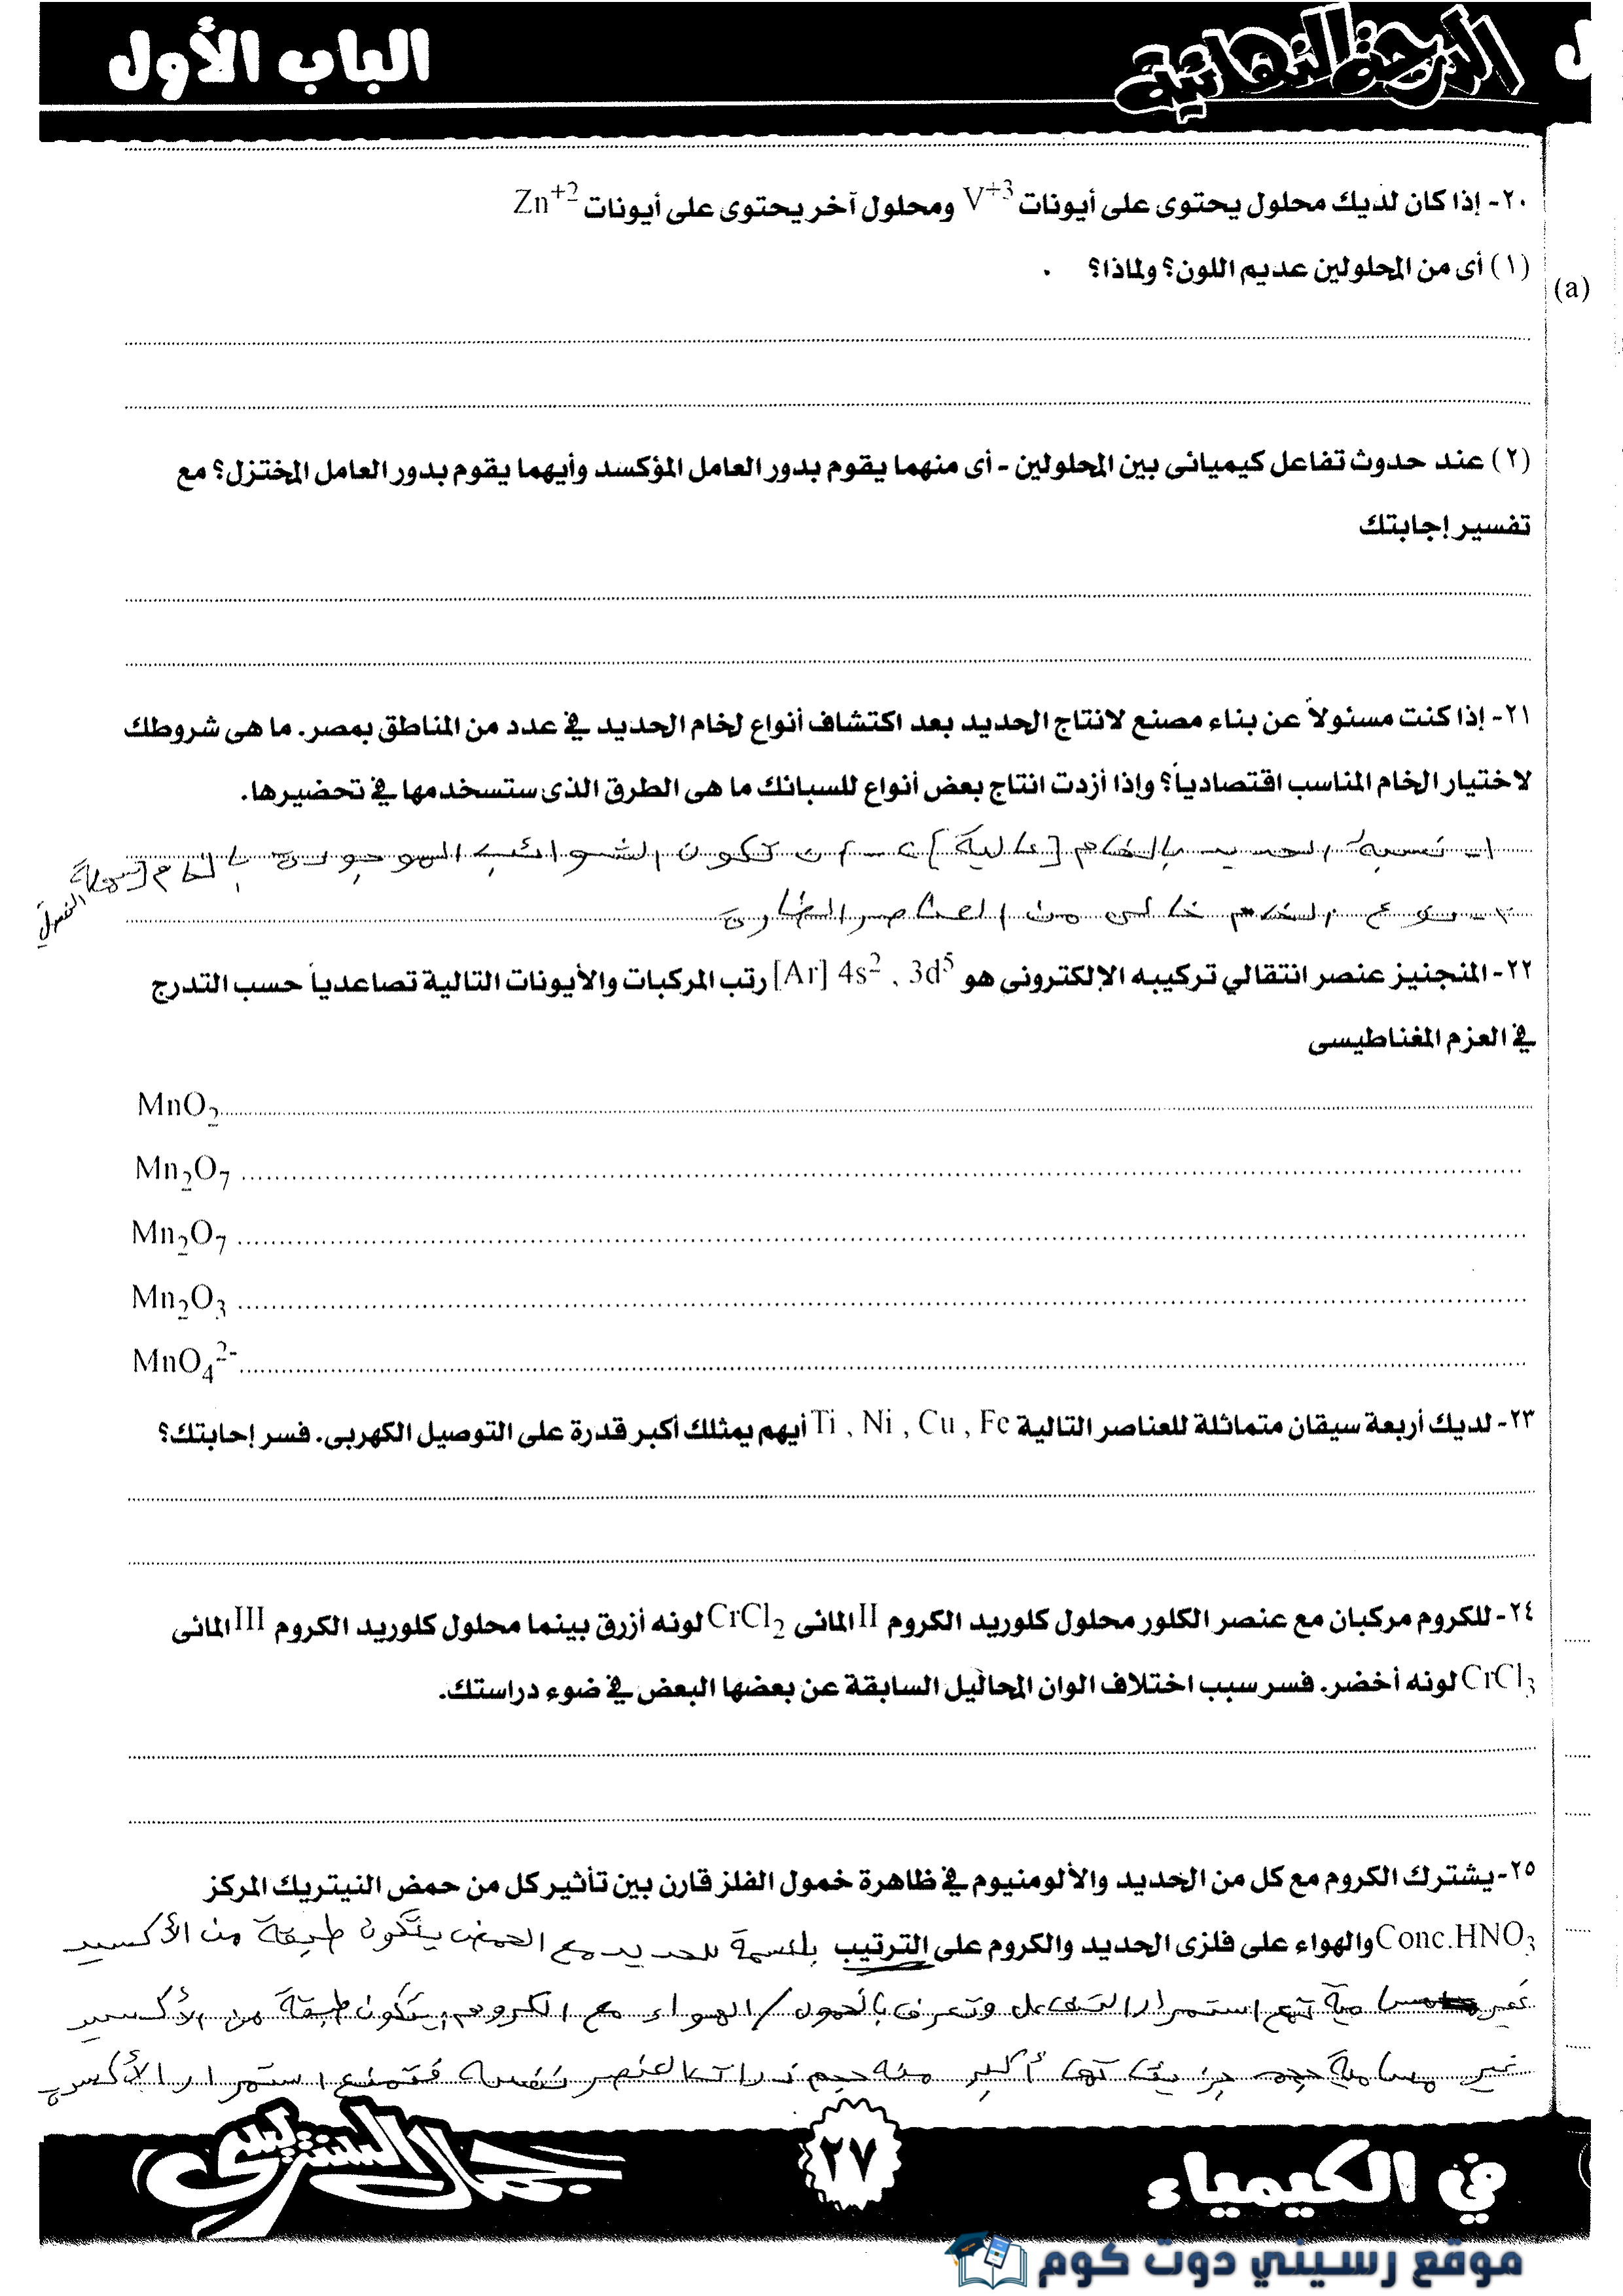 الدرجة النهائية
الباب الأول
٢٠- إذا كان لديك محلول يحتوى على أيونات V+3 ومحلول آخر يحتوى على أيونات Zn+2
(١) أى من المحلولين عديم اللون؟ ولماذا؟
(a)
(٢) عند حدوث تفاعل كيميائى بين المحلولين - أى منهما يقوم بدور العامل المؤكسد وأيهما يقوم بدور العامل المختزل؟ مع
تفسير إجابتك
٢١- إذا كنت مسئولاً عن بناء مصنع لانتاج الحديد بعد اكتشاف أنواع لخام الحديد فى عدد من المناطق بمصر. ما هى شروطك
لاختيار الخام المناسب اقتصادياً؟ وإذا أردت انتاج بعض أنواع للسبائك ما هى الطرق الذى ستسخدمها فى تحضيرها.
١- نسبة الحديد بالخام [عالية] ٢- أن تكون الشوائب الموجودة بالخام [سهلة الفصل
٣- نوع الخام خالى من العناصر الضارة
٢٢- المنجنيز عنصر انتقالي تركيبه الإلكترونى هو [Ar] 4s2 , 3d5 رتب المركبات والأيونات التالية تصاعدياً حسب التدرج
فى العزم المغناطيسى
MnO2
Mn2O7
Mn2O7
Mn2O3
MnO4 2-
٢٣- لديك أربعة سيقان متماثلة للعناصر التالية Ti , Ni , Cu , Fe أيهم يمثلك أكبر قدرة على التوصيل الكهربى. فسر إجابتك؟
٢٤- للكروم مركبان مع عنصر الكلور محلول كلوريد الكروم II المائى CrCl2 لونه أزرق بينما محلول كلوريد الكروم III المائى
CrCl3 لونه أخضر. فسر سبب اختلاف الوان المحاليل السابقة عن بعضها البعض فى ضوء دراستك.
٢٥- يشترك الكروم مع كل من الحديد والألومنيوم فى ظاهرة خمول الفلز قارن بين تأثير كل من حمض النيتريك المركز
Conc.HNO3 والهواء على فلزى الحديد والكروم على الترتيب بلنسبة للحديد مع الحمض يتكون طبقة من الأكسيد
غير مسامية تمنع استمرار التفاعل وتعرف بالخمول / الهواء مع الكروم يتكون طبقة من الأكسيد
غير مسامية حجم جزيئاتها أكبر من حجم ذرات العنصر نفسه فتمنع استمرار الأكسدة
في الكيمياء
٢٧
جمال السنتريسي
موقع رسيني دوت كوم